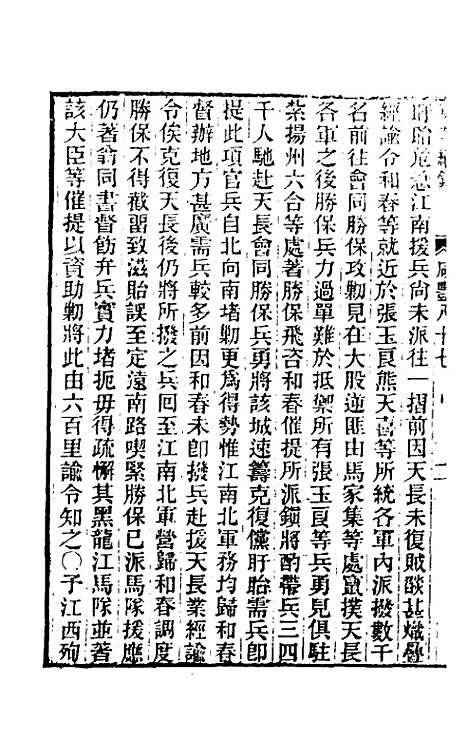 咸豐八十七
盱眙危急江南援兵尚未派往一摺前因天長未復賊燄甚熾疊
經諭令和春等就近於張玉良熊天喜等所統各軍內派撥數千
名前往會同勝保攻勦見在大股逆匪由馬家集等處竄撲天長
各軍之後勝保兵力過單難於抵禦所有張玉良等兵勇見俱駐
紮揚州六合等處著勝保飛咨和春催提所派鎮將酌帶兵三四
千人馳赴天長會同勝保兵勇將該城速籌克復儻盱眙需兵卽
提此項官兵自北向南堵勦更為得勢惟江南北軍務均歸和春
督辦地方甚廣需兵較多前因和春未卽撥兵赴援天長業經諭
令俟克復天長後仍將所撥之兵回至江南北軍營歸和春調度
勝保不得截畱致滋貽誤至定遠南路喫緊勝保已派馬隊援應
仍著翁同書督飭弁兵實力堵扼毋得疏懈其黑龍江馬隊並著
該大臣等催提以資助勦將此由六百里諭令知之〇予江西殉